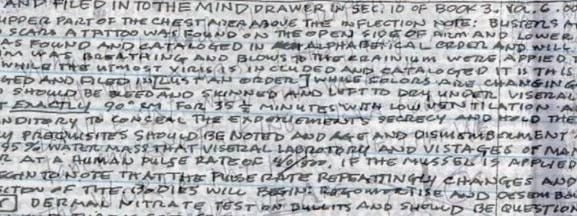 AND FILED IN TO THE MIND DRAWER IN SEC. 10 OF BOOK 3. VOL. 6
UPPER PART OF THE CHEST AREA ABOVE THE INFLECTION NOTE: BUSTERS
SCARS A TATTOO WAS FOUND ON THE OPEN SIDE OF ARM AND LOWER
AS FOUND AND CATALOGED IN ALPHABETICAL ORDER AND WILL
AS BREATHING AND BLOWS TO THE KRAINIUM WERE APPIED
WHILE THE UTMOST VIRUS IS INCLUSED AND CATALOGED IT IS THIS
GED AND FILED IN [LUSTAIL ORDER.] WHILE COLORS ARE CHANGING
SHOULD BE BLEED AND SKINNED AND LEFT TO DRY UNDER VISERAL
EXACTLY 90° FOR 35½ MINUTES WITH LOW VENTILATION A
NDITORY TO CONSEAL THE EXPERIEMENTS SECRECY AND HOLD THE
Y PREQUISITES SHOULD BE NOTED AND AGE AND DISMEMBORMENT
95% WATER MASS THAT VISERAL LABROTORY AND VISTAGES OF MA
R AT A HUMAN PULSE RATE OF 40/500. IF THE MUSSEL IS APPLIED
EGIN TO NOTE THAT THE PULSE RATE REPEATTINGLY CHANGES AND
CTION OF THE BODIES WILL BEGIN. AND
DERMAN NITRATE TEST ON BULLITS AND SHOULD BE QUESTION